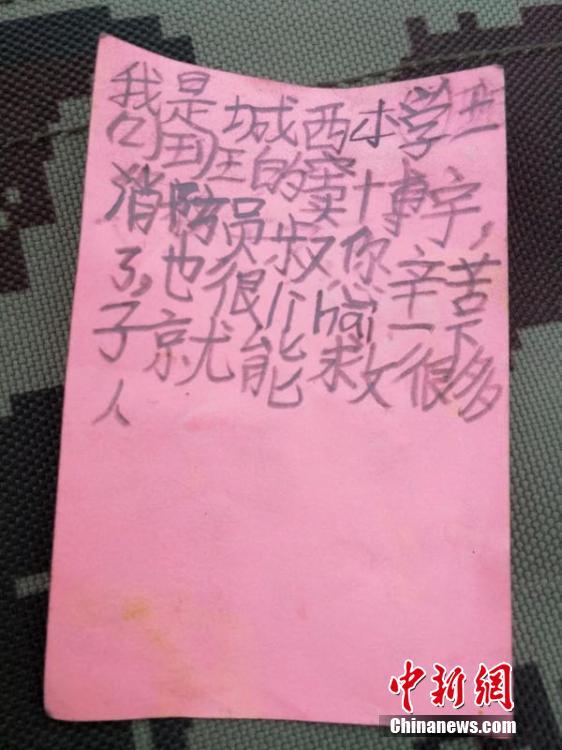 我是城西小学
的窦博宇,
消防员叔您辛苦
了,也很li hai一下
子就能救很多
人
中新網
Chinanews.com